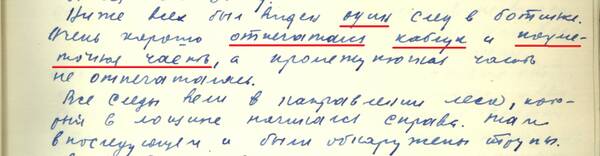 Ниже всех был виден один след в ботинке.
Очень хорошо отпечатался каблук и подме-
точная часть, а промежуточная часть
не отпечаталась.
Все следы вели в направлении леса, кото-
рый в лощине начинался справа. Там
в последующем и были обнаружены трупы.